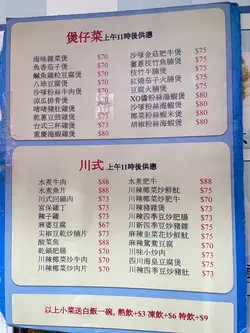 煲仔菜 上午11時後供應
海味雜菜煲 $70
魚香茄子煲 $70
鹹魚雞粒豆腐煲 $70
八珍豆腐煲 $70
沙嗲粉絲牛肉煲 $70
涼瓜排骨煲 $70
啫啫豬肝煲 $70
乾蔥豆豉雞煲 $70
台式三杯雞煲 $70
重慶海蝦雞煲
沙嗲金菇肥牛煲 $75
薑蔥枝竹魚腩煲 $75
枝竹牛腩煲 $75
紅燒茄子火腩煲 $75
豆腐火腩煲 $75
XO醬粉絲海蝦煲 $80
沙嗲粉絲海蝦煲 $80
椰菜粉絲蝦米煲 $80
胡椒粉絲海蝦煲 $80
川式 上午11時後供應
水煮牛肉 $88
水煮魚片 $88
川式回鍋肉 $73
宮保雞丁 $73
辣子雞 $73
麻婆豆腐 $67
尖椒豆乾炒肉片 $73
酸菜魚 $88
乾鍋肥腸
川辣椰菜炒肉片 $73
水煮肥牛 $88
川辣椰菜炒鮮魷 $75
川辣豬雜煲 $73
川辣四季豆炒肥腸 $73
川新四季豆炒鮮魷 $75
麻辣韭菜花炒鮮魷 $75
麻辣鴛鴦豆腐 $70
川味小炒肉 $73
四川海皇豆腐煲 $75
川辣四季豆炒豬肚 $73
以上小菜送白飯一碗。熱飲+$3 凍飲+$6 特飲+$9